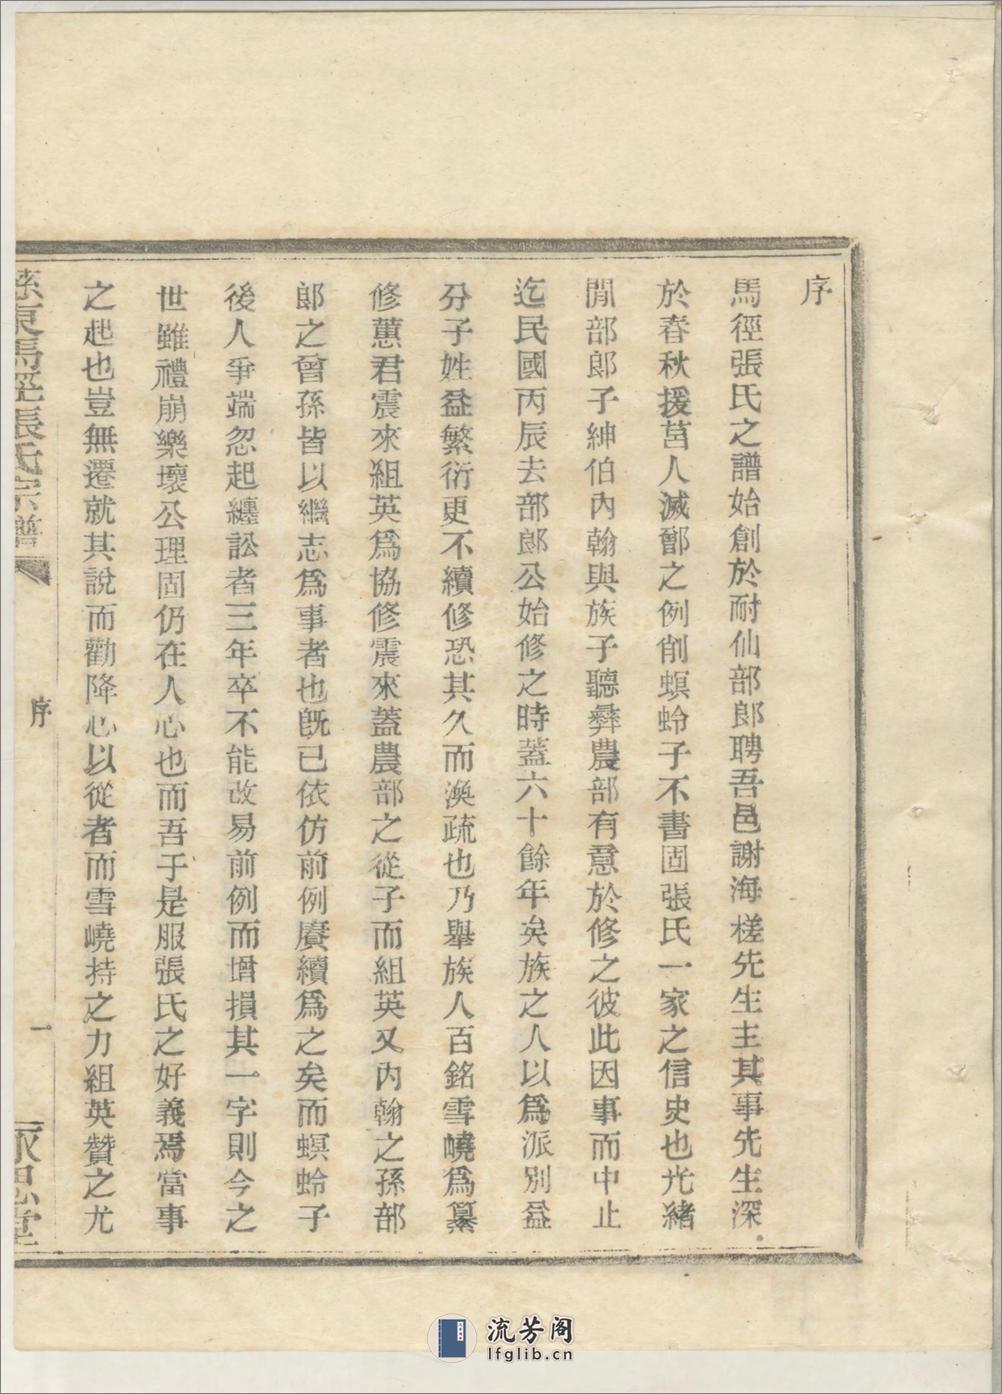 序
馬徑張氏之譜始創於耐仙部郎聘吾邑謝海槎先生主其事先生深
於春秋援莒人滅鄫之例削螟蛉子不書固張氏一家之信史也光緒
間部郎子紳伯內翰與族子聽彝農部有意於修之彼此因事而中止
迄民國丙辰去部郎公始修之時蓋六十餘年矣族之人以為派別益
分子姓益繁衍更不續修恐其久而渙疏也乃舉族人百銘雪嶢為纂
修蕙君震來組英為協修震來蓋農部之從子而組英又內翰之孫部
郎之曾孫皆以繼志為事者也既已依仿前例賡續為之矣而螟蛉子
後人爭端忽起纏訟者三年卒不能改易前例而增損其一字則今之
世雖禮崩樂壞公理固仍在人心也而吾于是服張氏之好義焉當事
之起也豈無遷就其說而勸降心以從者而雪嶢持之力組英贊之尤
慈東馬徑張氏宗譜
序
一
永思堂
流芳阁
lfglib.cn